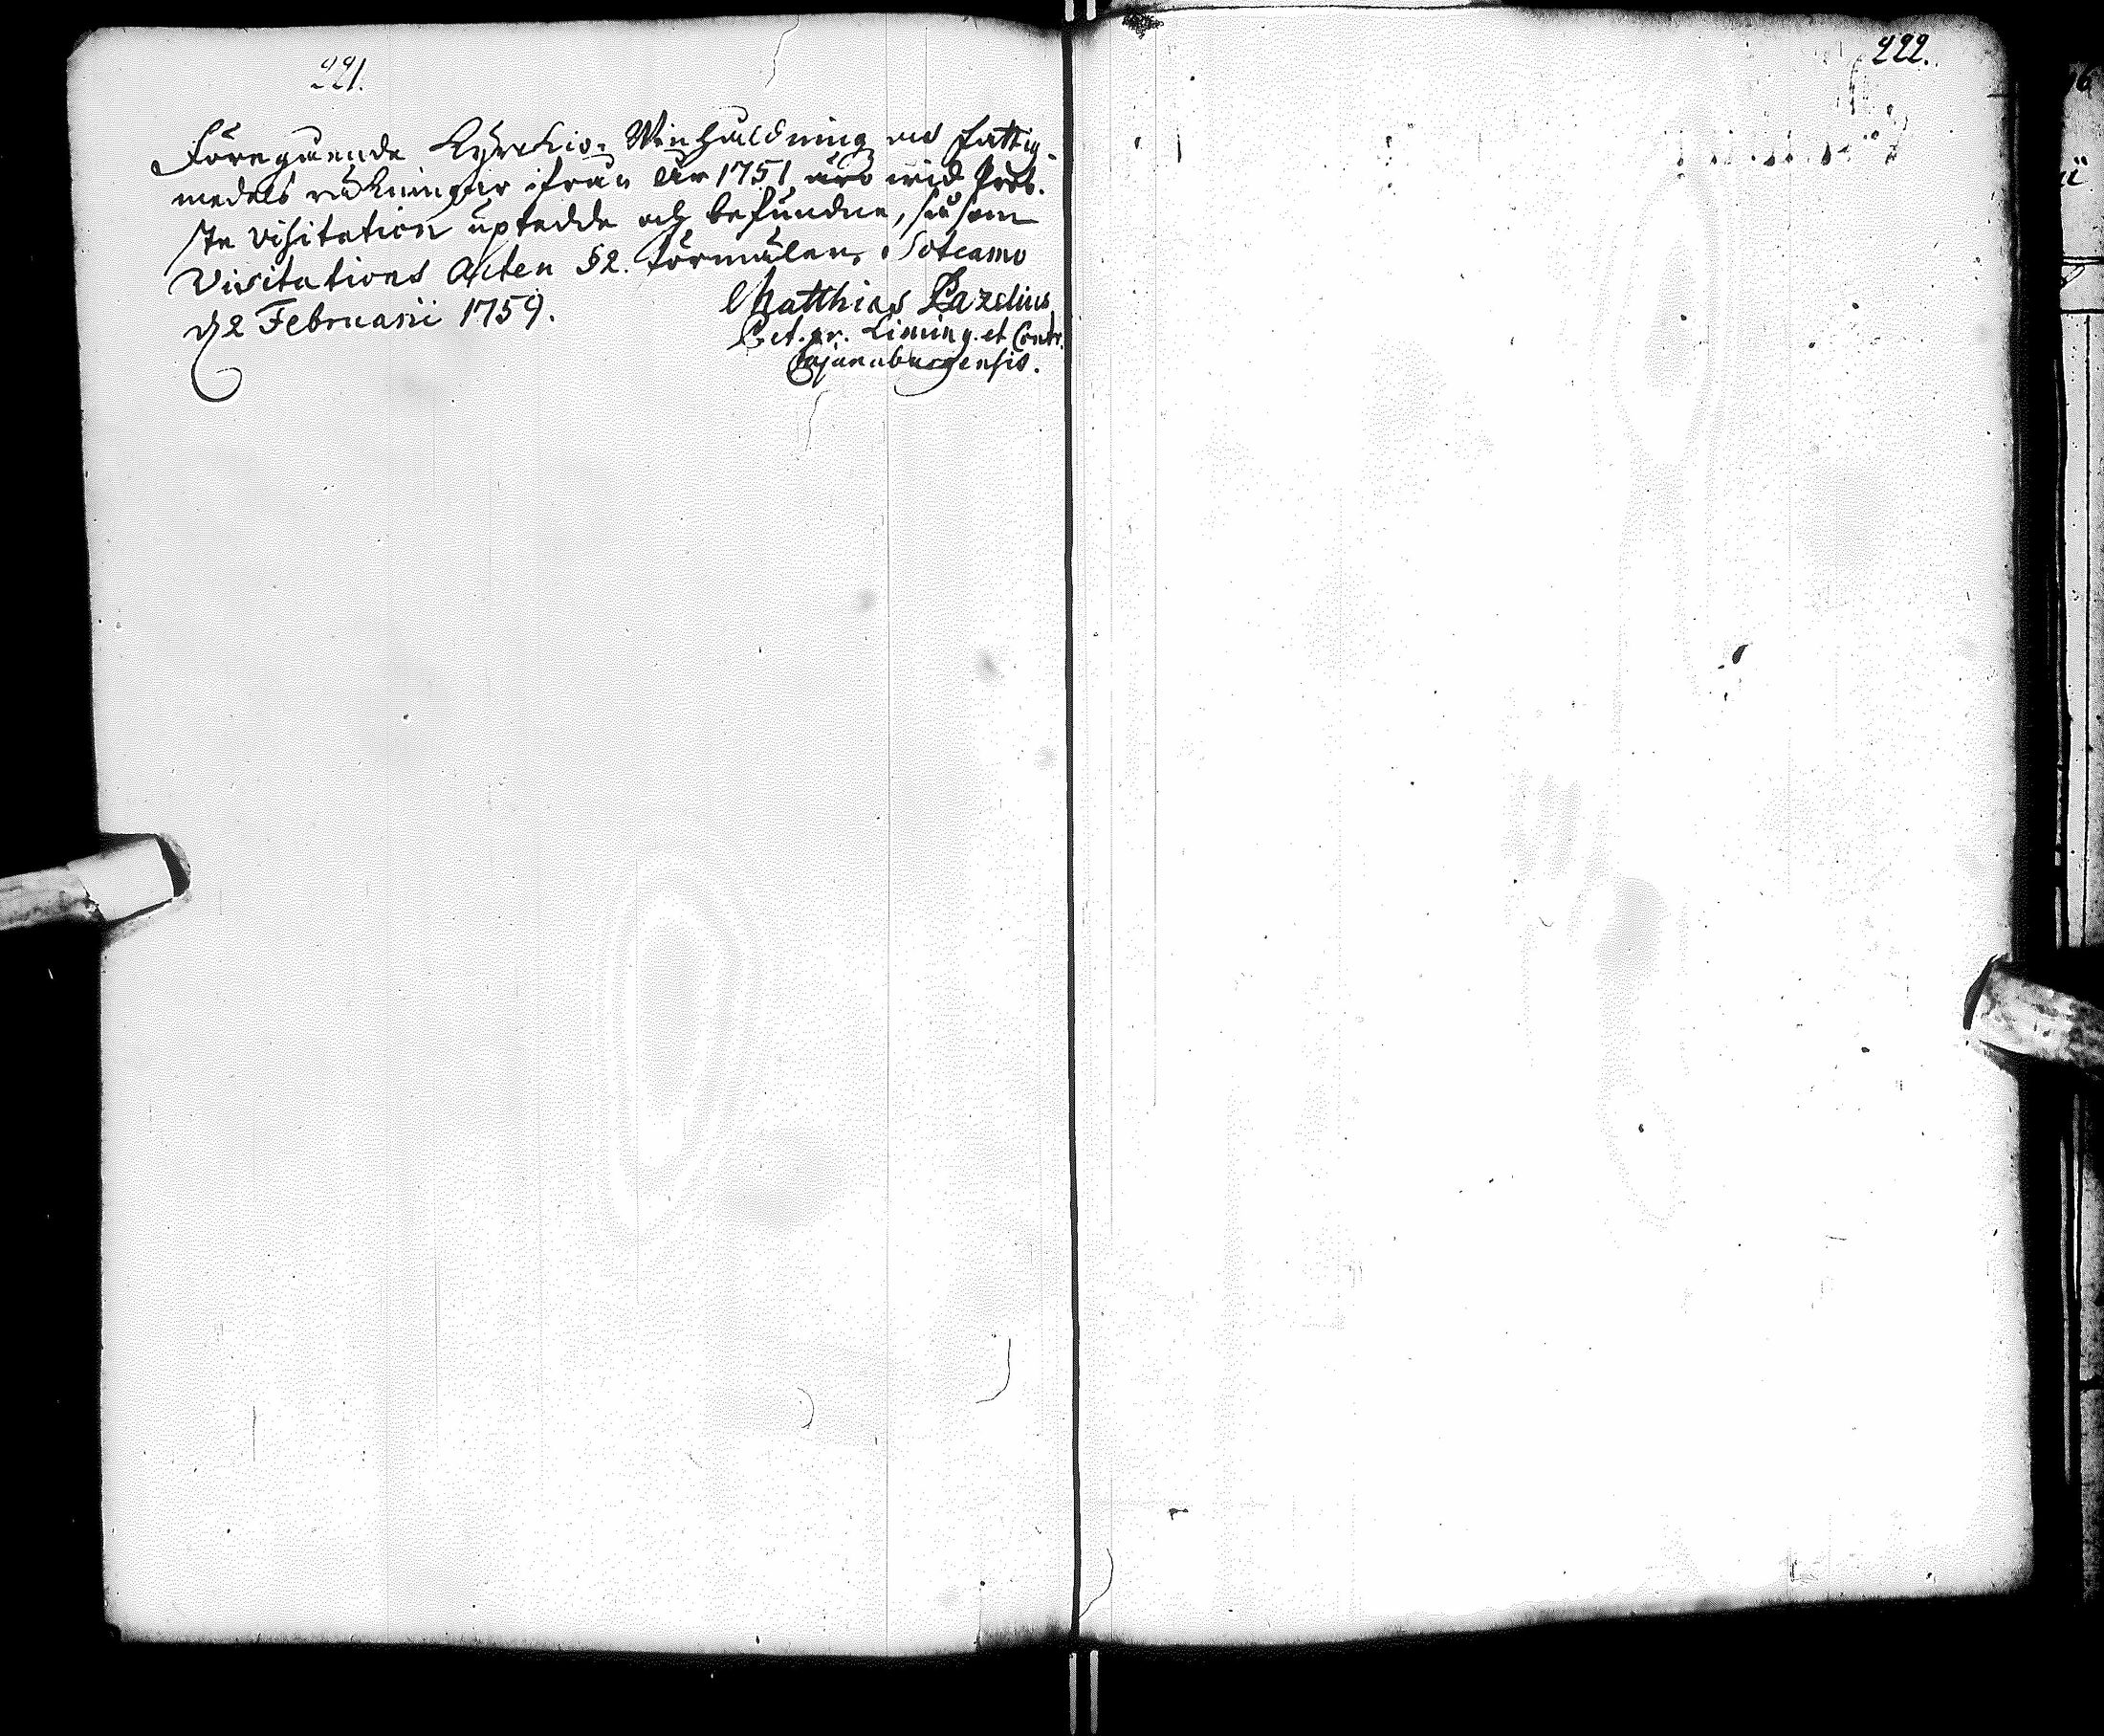 221.
222.
Föregående Kyrckio- Winhåldning och Fattig-
medels räkningar ifrån År 1751 äro wid Prob-
ste Visitation uptedde och befundne, såsom
Visitations Acten §2. förmäler. Sotcamo
d 2 Februarii 1759.
Matthias Lazelius
P et. pr. Liming. et Contr.
Cajanaburgensis.